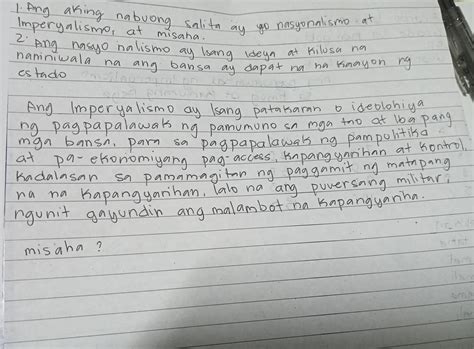 1. Ang aking nabuong salita ay yo nasyonalismo at
Imperyalismo, at misaha.
2. Ang nasyo nalismo ay Isang ideya at kilusa na
naniniwala na ang bansa ay dapat na na kaayon ng
estado
Ang Imperyalismo ay Isang patakaran o ideolohiya
ng pagpapalawak ng pamumuno sa mga tao at iba pang
mga bansa, para sa pagpapalawak ng pampulitika
at pa-ekonomiyang pag-access, kapangyarihan at kontrol,
kadalasan sa pamamagitan ng paggamit ng matapang
na na kapangyarihan, lalo na ang puwersang militar,
ngunit gayundin ang malambot na kapangyariha.
misaha ?